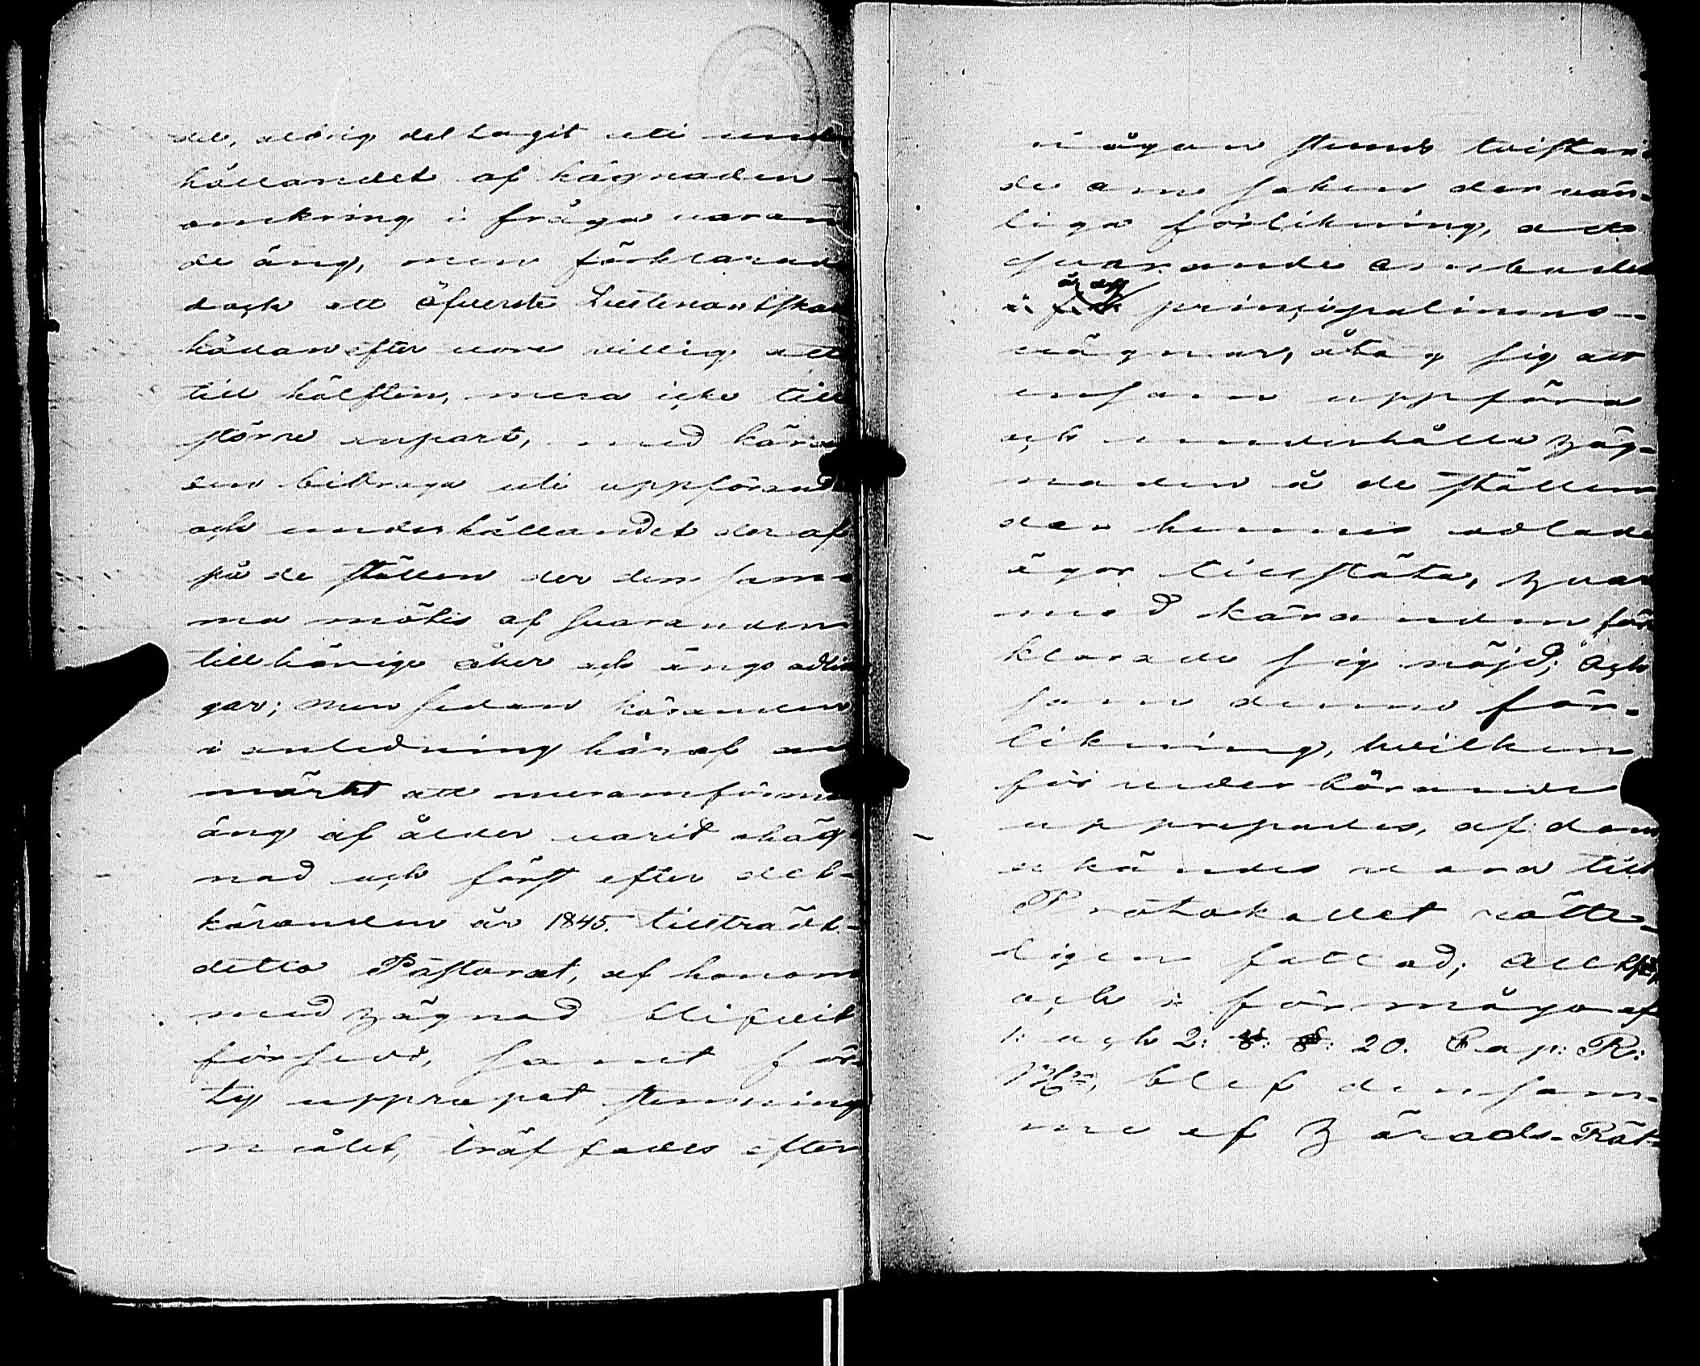 del, aldrig deltagit uti under
hållandet af hägnaden
omkring i fråga varan
de äng, men förklarade
dock att öfverste Lieutenantskan
hädanefter vore villig att
till hälften, men icke till
större anpart, med käran
den bidraga uti uppförand
och underhållandet der af
på de ställen der den sam
ma mötes af Svarandens
tillhöriga åker och ängs odlin
gar; men sedan käranden
i anledning häraf an
märkt att meromförmä
äng af ålder varit ohäg
nad och först efter det
käranden år 1845. tillträdt
detta Pastorat, af honom
med hägnad blifvit
försedd, samt för
ty uppropat stemnings
målet, träffades efter
någon stunds tvistan
de om saken den vän-
liga förlikning, att
Svarande ombudet
å dess principalinnas
vägnar, åtog sig att
ensam uppföra
och underhålla häg-
naden å de ställen
der hennes odlade
ägor tillstöta, hvar
med käranden för
klarade sig nöjd; Och
som denna för-
likning, hvilken
för vederbörande
upprepades, af dem
erkändes vara till
Protokollet rätte-
ligen fattad; Alltså
och i förmåga af
1: och 2: §. §. 20. Cap: R:
B., blef densam-
me af Härads-Rät-